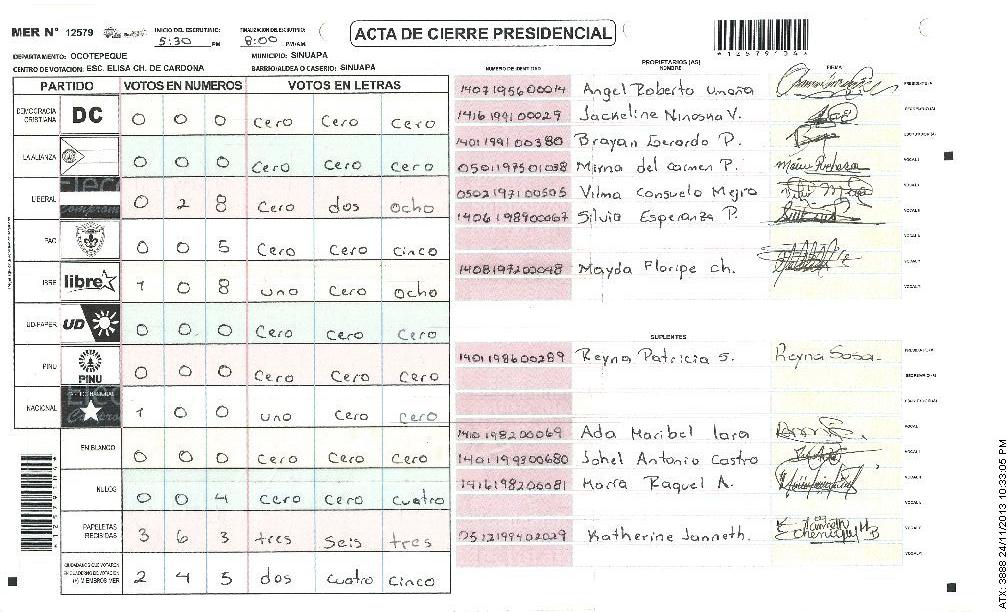 MER Nº 12579
INICIO DEL ESCRUTINIO:
5:30 PM
FINALIZACION DEL ESCRUTINIO:
8:00 PM/AM
ACTA DE CIERRE PRESIDENCIAL
*12579/04*
DEPARTAMENTO: OCOTEPEQUE
MUNICIPIO: SINUAPA
CENTRO DE VOTACION: ESC. ELISA CH. DE CARDONA
BARRIO/ALDEA O CASERIO: SINUAPA
PARTIDO VOTOS EN NUMEROS VOTOS EN LETRAS
DEMOCRACIA CRISTIANA DC 0 0 0 cero cero cero
LA ALIANZA 0 0 0 cero cero cero
LIBERAL 0 2 8 cero dos ocho
PAC 0 0 5 cero cero cinco
LIBRE libre 1 0 8 uno cero ocho
UD-FAPER UD 0 0 0 cero cero cero
PINU PINU 0 0 0 cero cero cero
NACIONAL 1 0 0 uno cero cero
EN BLANCO 0 0 0 cero cero cero
NULOS 0 0 4 cero cero cuatro
PAPELETAS RECIBIDAS 3 6 3 tres seis tres
CIUDADANOS QUE VOTARON EN CUADERNO DE VOTACION (+) MIEMBROS MER 2 4 5 dos cuatro cinco
PROPIETARIOS (AS)
NUMERO DE IDENTIDAD NOMBRE FIRMA
1407195600014 Angel Roberto Umaña
1416199100029 Jackeline Ninoska V.
1401199100380 Brayan Gerardo P.
0501197501038 Mirna del carmen P.
0502197100505 Vilma Consuelo Mejia
1406198900067 Silvia Esperanza P.
1408197200048 Mayda Floripe ch.
SUPLENTES
1401198600289 Reyna Patricia S. Reyna Sosa.
1410198200069 Ada Maribel lara
1401199300680 Johel Antonio Castro
1416198200081 Maria Raquel A.
0512199402029 Katherine Janneth.
ATX: 3888 24/11/2013 10:33:05 PM